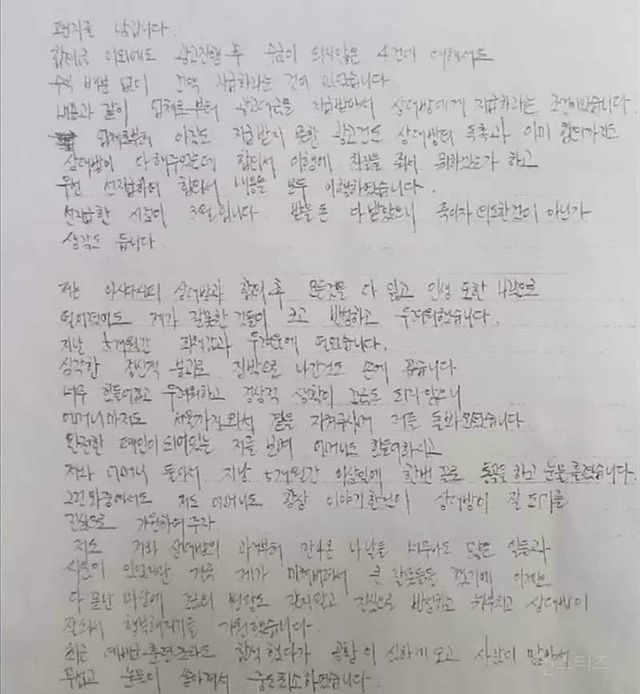 편지를 남깁니다.
합의금 이외에도 광고진행 후 수금이 되지않은 4건에 대해서도
수익 배분 없이 전액 지급하라는 건이 있었습니다
내용과 같이 업체로부터 광고대금을 지급받아서 상대방에게 지급하라는 조건이였습니다.
업체로부터 아직도 지급받지 못한 광고건도 상대방의 독촉과 이미 합의까지도
상대방이 다 해주었는데 합의서 이행에 차질을 줘서 뭐하겠는가 하고
우선 선지급하여 합의서 내용을 모두 이행하였습니다.
선지급한 시점이 3월입니다. 받을 돈 다 받았으니 죽이자 의도한건이 아닌가
생각도 듭니다
저는 상대방과 합의 후 모든것을 다 잃고 인생 또한 나락으로
떨어졌어도 제가 잘못한 것들이 크고 반범하고 두려워했습니다.
지난 5개월간 죄책감과 두려움에 떨었습니다.
심각한 정신적 붕괴로 집밖으로 나간것도 손에 꼽습니다
너무 힘들어하고 두려워하고 정상적 생활이 조금도 되지않으니
어머니마저도 서울까지 와서 같은 자취방에서 저를 돌봐오셨습니다
완전한 폐인이 되어있는 저를 보며 어머니도 힘들어하시고
저와 어머니 둘이서 지난 5개월간 이삼일에 한번 꼴로 통곡을 하고 눈물 흘렸습니다.
그런 와중에서도 저도 어머니도 항상 이야기한것이 상대방이 잘 되기를
진심으로 기원하여주자.
저도 저와 상대방의 과거부터 만나온 나날들 너무나도 많은 일들과
시련이 있었지만 결국 제가 큰 잘못들을 했기에 이제는
다 끝난 마당에 조금의 변명도 갖지말고 진심으로 반성하고 뉘우치고 상대방이
잘되서 행복해지기를 기원했습니다.
최근 예비군훈련조차도 참석했다가 공황이 심하게 오고 사람이 많아서
무섭고 눈물이 쏟아져서 중도퇴소하였습니다.
인스티즈